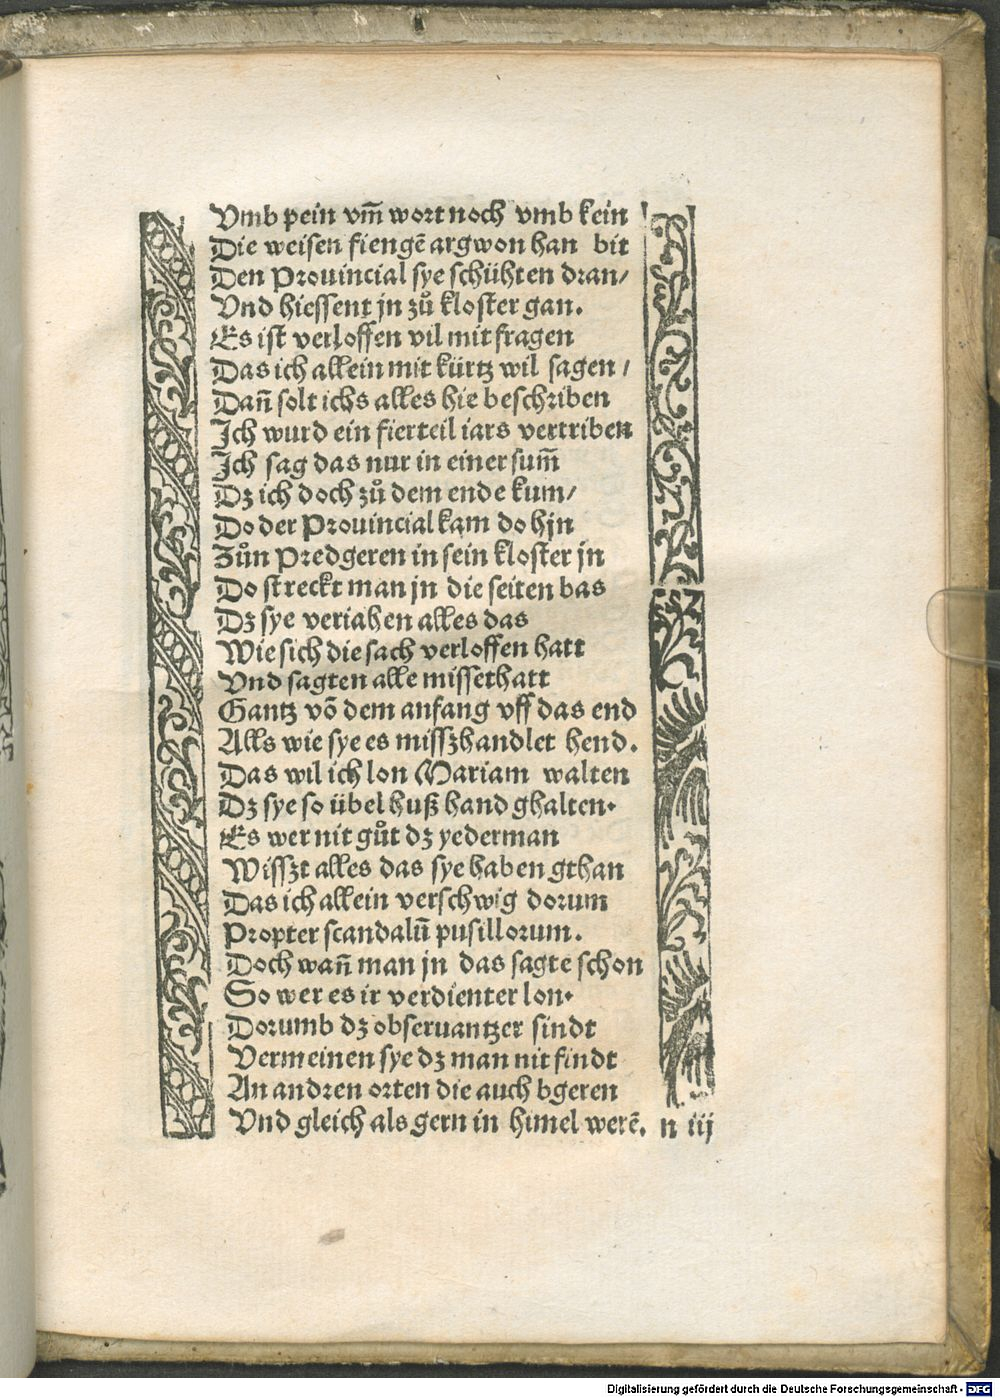 Vmb pein vm̄ wort noch vmb kein bit
Die weisen fiengē argwon han
Den Prouincial sye schühten dran/
Vnd hiessent jn zů kloster gan.
Es ist verloffen vil mit fragen
Das ich allein mit kürtz wil sagen /
Dañ solt ichs alles hie beschriben
Ich wurd ein fierteil iars vertriben
Ich sag das nur in einer sum̄
Dz ich doch zů dem ende kum/
Do der Prouincial kam do hjn
Zůn Predgeren in sein kloster jn
Do streckt man jn die seiten bas
Dz sye veriahen alles das
Wie sich die sach verloffen hatt
Vnd sagten alle missethatt
Gantz vō dem anfang vff das end
Alls wie sye es misszhandlet hend.
Das wil ich lon Mariam walten
Dz sye so übel huß hand ghalten.
Es wer nit gůt dz yederman
Wisszt alles das sye haben gthan
Das ich allein verschwig dorum
Propter scandalū pusillorum.
Doch wañ man jn das sagte schon
So wer es ir verdienter lon.
Dorumb dz obseruantzer sindt
Vermeinen sye dz man nit findt
An andren orten die auch bgeren
Vnd gleich als gern in himel werē. n iij
Digitalisierung gefördert durch die Deutsche Forschungsgemeinschaft - DFG